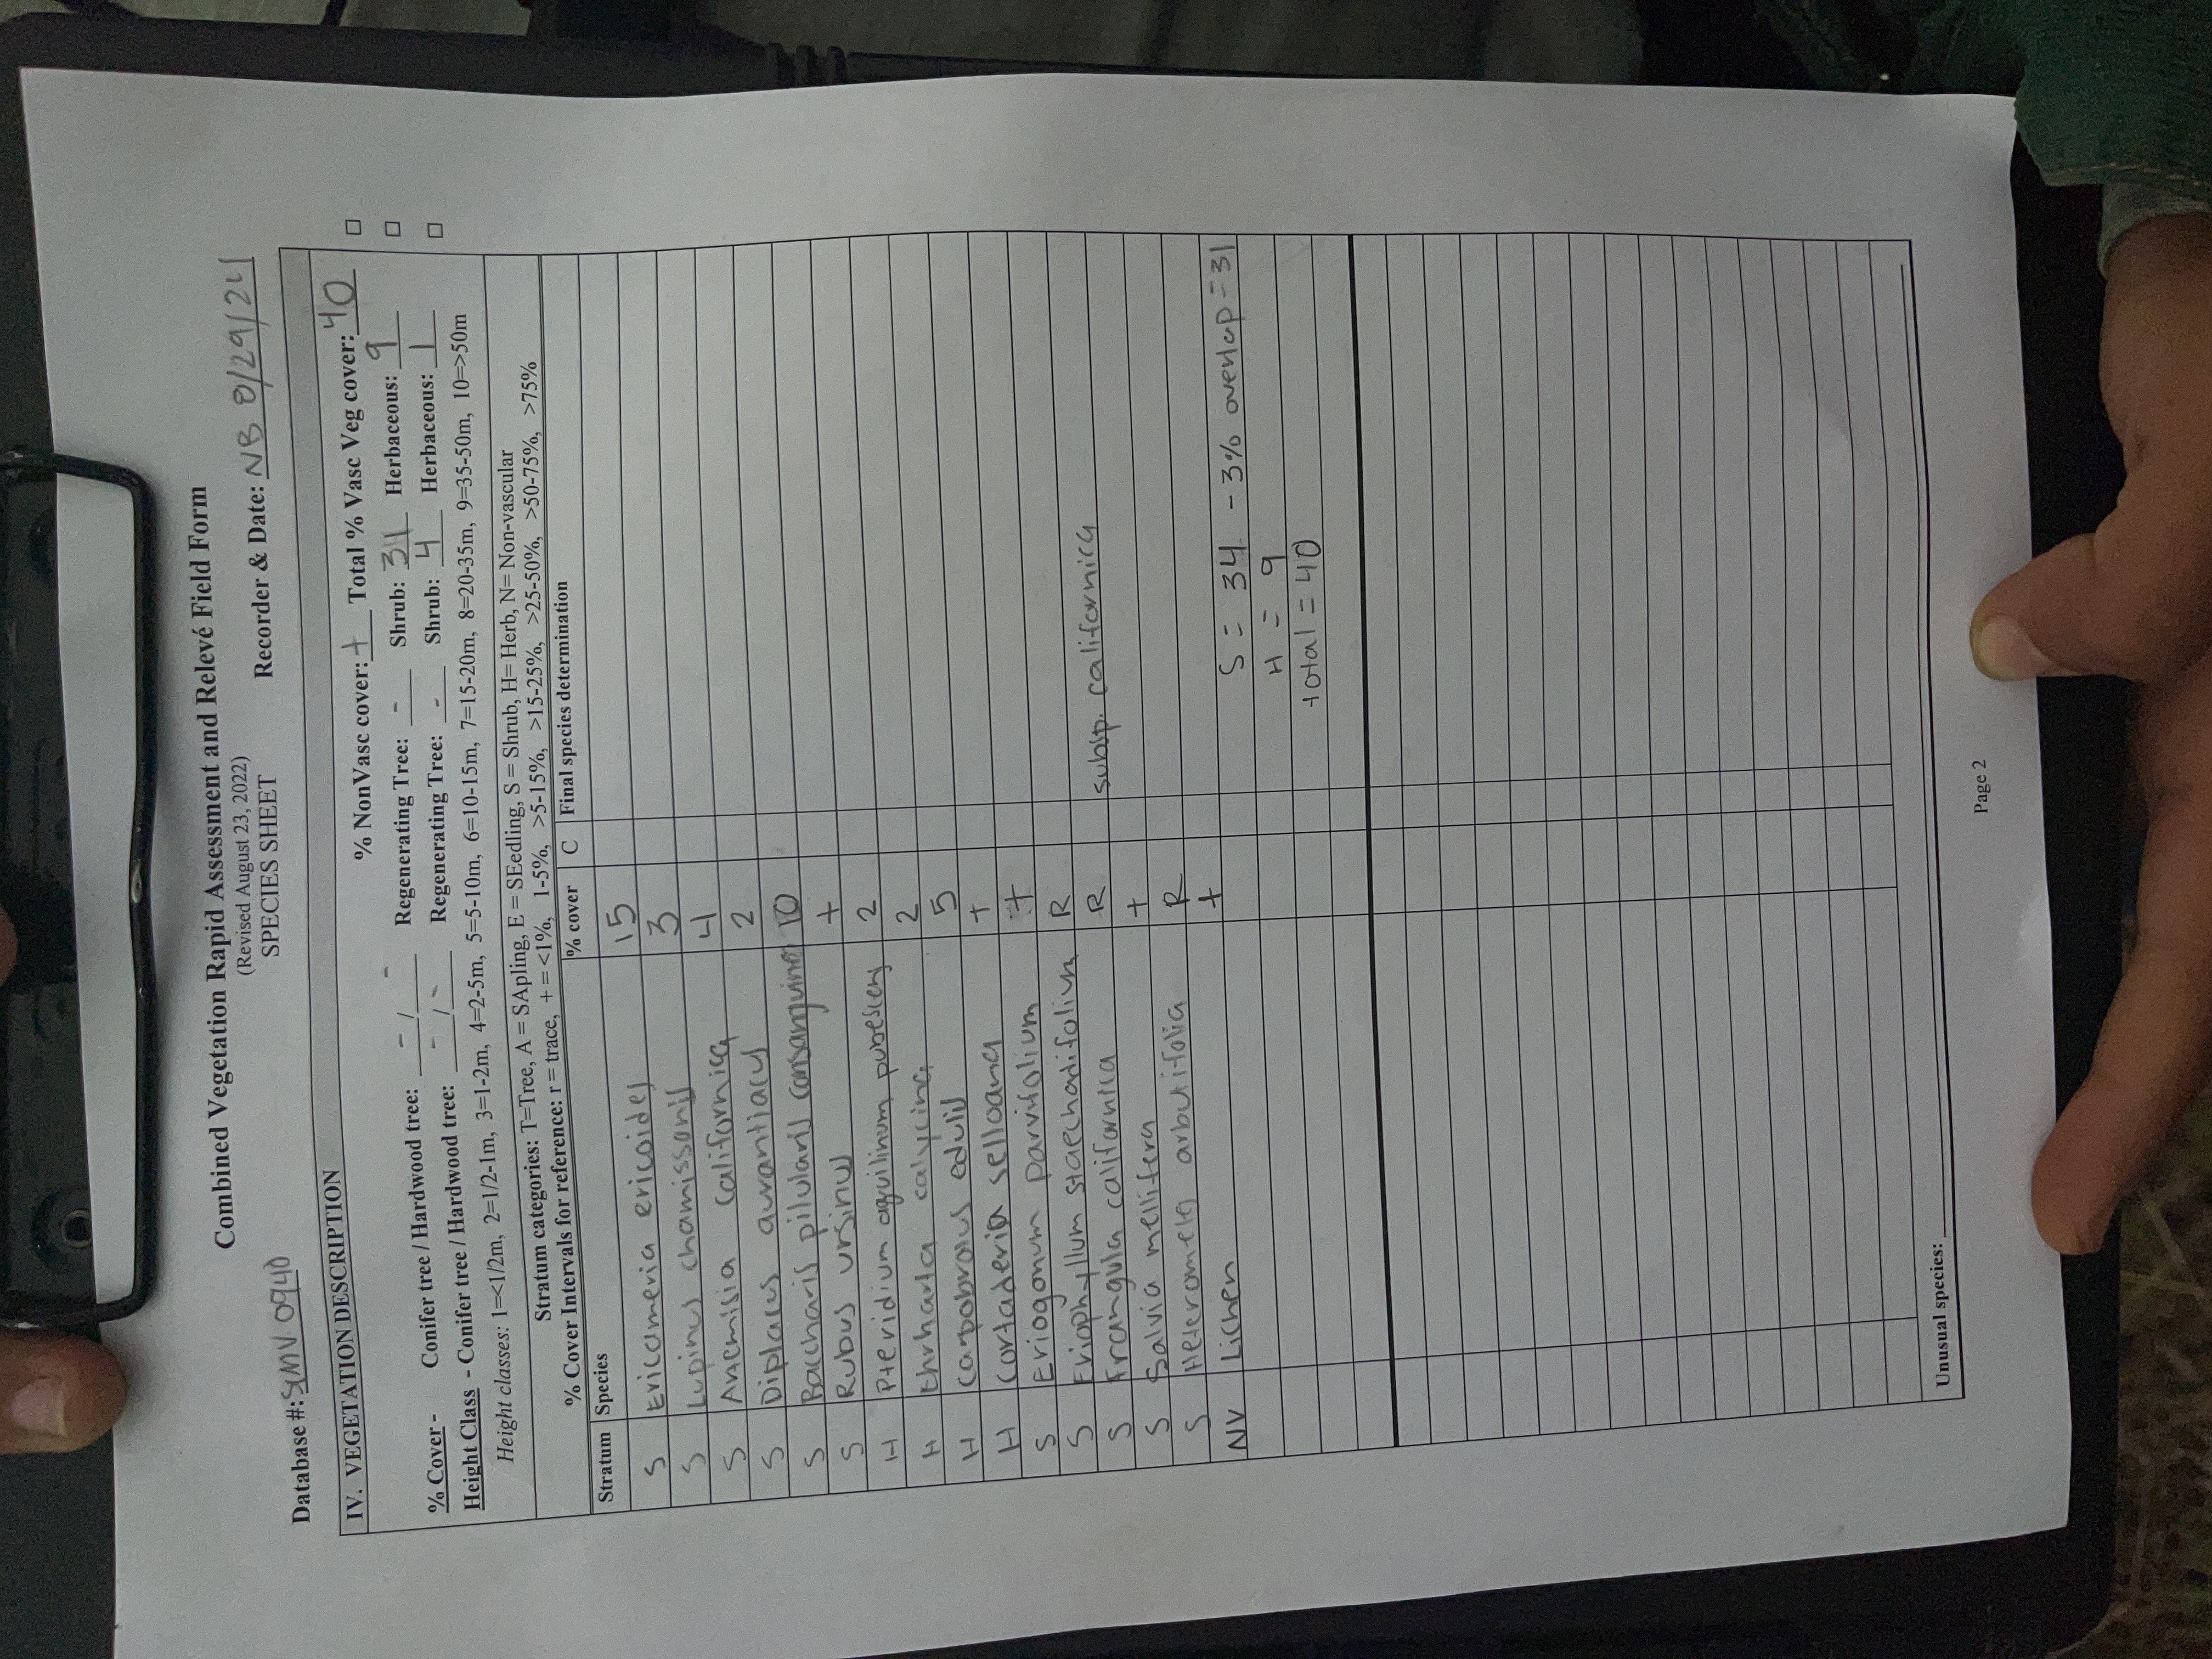 Combined Vegetation Rapid Assessment and Relevé Field Form
(Revised August 23, 2022)
SPECIES SHEET
Database #: SMV 0940 Recorder & Date: NB 8/29/24
IV. VEGETATION DESCRIPTION
% NonVasc cover: + Total % Vasc Veg cover: 40 □
% Cover - Conifer tree / Hardwood tree: - / - Regenerating Tree: - Shrub: 31 Herbaceous: 9 □
Height Class - Conifer tree / Hardwood tree: - / - Regenerating Tree: - Shrub: 4 Herbaceous: 1 □
Height classes: 1=<1/2m, 2=1/2-1m, 3=1-2m, 4=2-5m, 5=5-10m, 6=10-15m, 7=15-20m, 8=20-35m, 9=35-50m, 10=>50m
Stratum categories: T=Tree, A = SApling, E = SEedling, S = Shrub, H= Herb, N= Non-vascular
% Cover Intervals for reference: r = trace, + = <1%, 1-5%, >5-15%, >15-25%, >25-50%, >50-75%, >75%
Stratum Species % cover C Final species determination
S Ericameria ericoides 15
S Lupinus chamissonis 3
S Artemisia californica 4
S Diplacus aurantiacus 2
S Baccharis pilularis consanguinea 10
S Rubus ursinus +
H Pteridium aquilinum pubescens 2
H Ehrharta calycina 2
H Carpobrotus edulis 5
H Cortaderia selloana +
S Eriogonum parvifolium +
S Eriophyllum staechadifolium R
S Frangula californica R subsp. californica
S Salvia mellifera +
S Heteromeles arbutifolia R
NV Lichen +
S = 34 - 3% overlap = 31
H = 9
total = 40
Unusual species:
Page 2